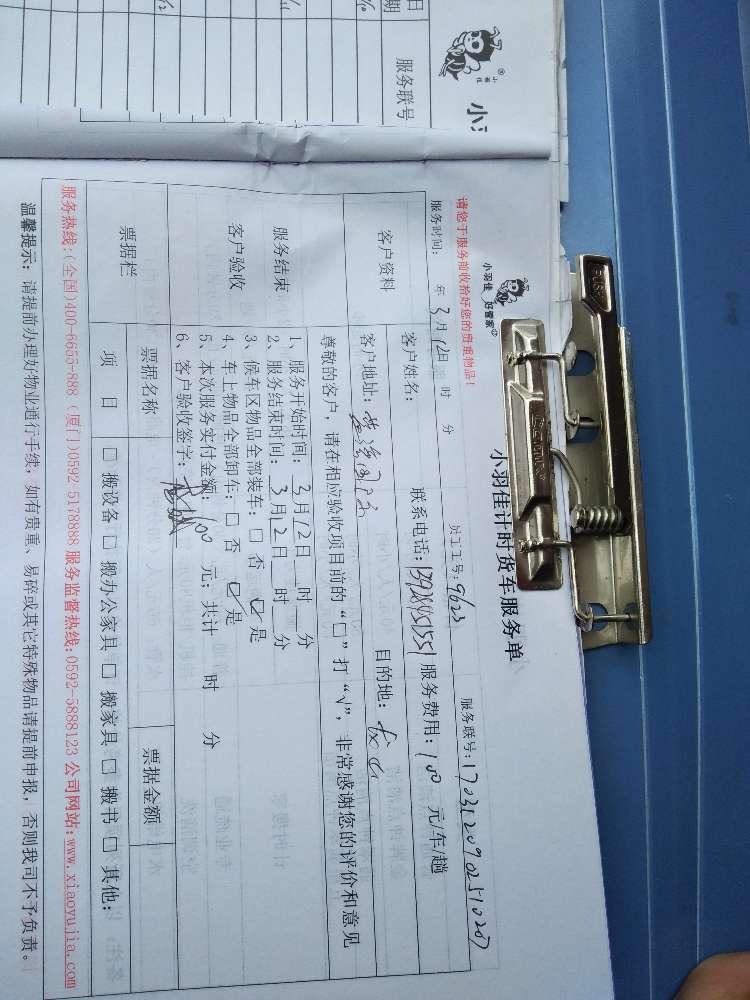 日期
服务联号
小羽佳
小羽佳 好管家
小羽佳计时货车服务单
请您于服务前收拾好您的贵重物品！
服务时间： 年 3月12日 时 分 员工工号：9623 服务联号：1703120902510207
客户资料
客户姓名： 联系电话： 服务费用：100 元/车/趟
客户地址： 目的地：
尊敬的客户：请在相应验收项目前的“□”打“√”，非常感谢您的评价和意见
服务结束
客户验收
1、服务开始时间：3月12日 时 分
2、服务结束时间：3月12日 时 分
3、候车区物品全部装车：□ 否 ☑ 是
4、车上物品全部卸车：□ 否 ☑ 是
5、本次服务实付金额：100 元；共计 时 分
6、客户验收签字：
票据栏
票据名称 票据金额
项 目 □ 搬设备 □ 搬办公家具 □ 搬家具 □ 搬书 □ 其他：
服务热线：(全国)400-6655-888 (厦门)0592 5178888 服务监督热线：0592-5888123 公司网站：www.xiaoyujia.com
温馨提示：请提前办理好物业通行手续，如有贵重、易碎或其它特殊物品请提前申报，否则我司不予负责。